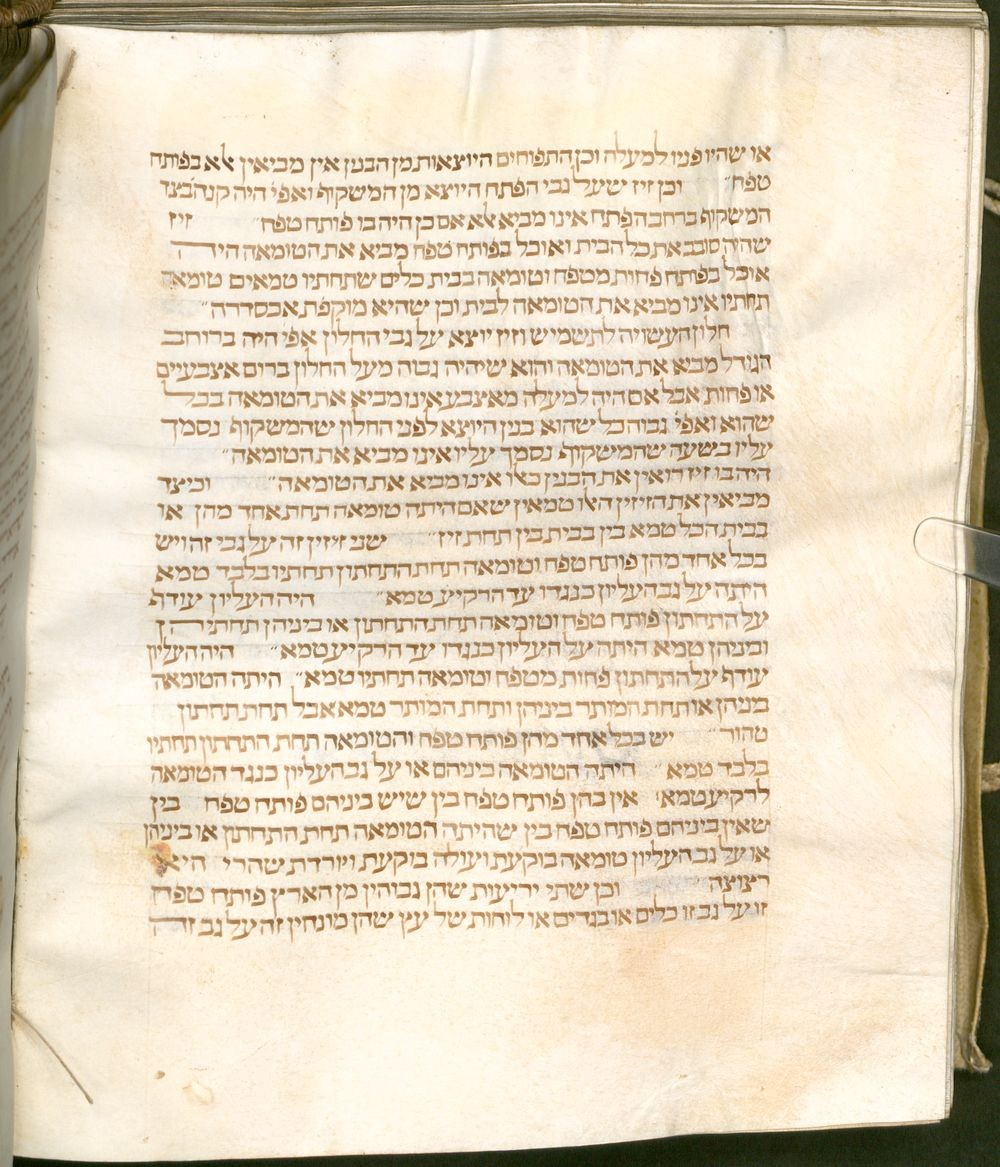 או שהיו פניו למעלה וכן התפוחים היוצאות מן הבנין אין מביאין אלא בפותח
טפח״ וכן זיז שעל גבי הפתח היוצא מן המשקוף ואפי׳ היה קנה בצד
המשקוף ברחב הפתח אינו מביא אלא אם כן היה בו פותח טפח״ זיז
שהיה סובב את כל הבית ואוכל בפותח טפח מביא את הטומאה היה
אוכל בפתח פחות מטפח וטומאה בבית כלים שתחתיו טמאים טומאה
תחתיו אינו מביא את הטומאה לבית וכן שהיא מוקפת אכסדרה״
חלון העשויה לתשמיש וזיז יוצא על גבי החלון אפי׳ היה ברוחב
הגודל מביא את הטומאה והוא שיהיה גבוה מעל החלון ברום אצבעיים
או פחות אבל אם היה למעלה מאצבע אינו מביא את הטומאה בכל
שהוא ואפי׳ גבוה כל שהוא בנין היוצא לפני החלון שהמשקוף נסמך
עליו בשעה שהמשקוף נסמך עליו אינו מביא את הטומאה״
היה בו זיז רואין את הבנין כאלו אינו מביא את הטומאה״ וכיצד
מביאין את הזיזין האלו טמאין שאם היתה טומאה תחת אחד מהן או
בבית הכל טמא בין בבית בין תחת זיז״ שני זיזין זה על גבי זה ויש
בכל אחד מהן פותח טפח וטומאה תחת התחתון תחתיו בלבד טמא
היתה על גב העליון כנגדו עד הרקיע טמא״ היה העליון עודף
על התחתון פותח טפח וטומאה תחת התחתון או ביניהן תחתיהן
וביניהן טמא היתה על העליון כנגדו עד הרקיע טמא״ היה העליון
עודף על התחתון פחות מטפח וטומאה תחתיו טמא״ היתה הטומאה
בניהן או תחת המותר ביניהן ותחת המותר טמא אבל תחת תחתון
טהור״ יש בכל אחד מהן פותח טפח והטומאה תחת התחתון תחתיו
בלבד טמא״ היתה הטומאה ביניהם או על גב העליון כנגד הטומאה
לרקיע טמא׳ אין בהן פותח טפח בין שיש ביניהם פותח טפח בין
שאין ביניהם פותח טפח בין שהיתה הטומאה תחת התחתון או ביניהן
או על גב העליון טומאה בוקעת ועולה בוקעת ויורדת שהרי היא
רצוצה״ וכן שתי יריעות שהן גבוהין מן הארץ פותח טפח
זו על גב זו כלים או בגדים או לוחות של עץ שהן מונחין זה על גב זה